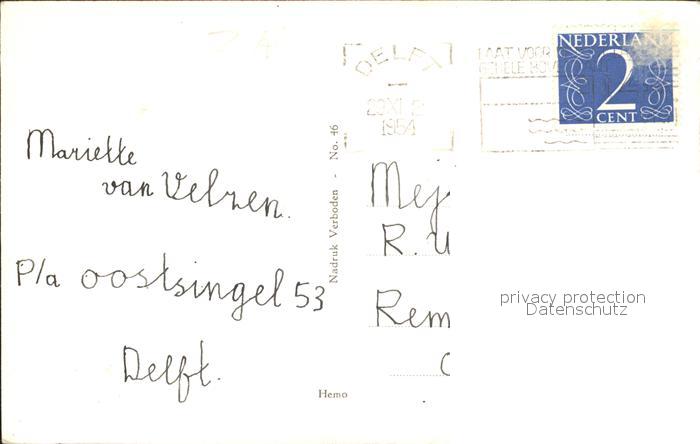 DELFT
1954
LAAT VOOR
NEDERLAND
2
CENT
Mariette
van Velzen.
P/a oostsingel 53
Delft.
Nadruk Verboden - No. 46
Hemo
Mej
R.
Rem
privacy protection
Datenschutz